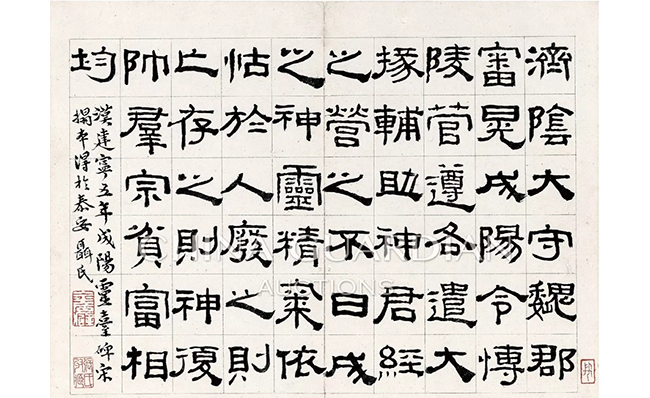 濟陰大守魏郡
審晃成陽令愽
陵菅遵各遣大
掾輔助神君經
之營之不日成
之神靈精氣依
怙於人廢之則
亡存之則神復
帥羣宗貧富相
均
漢建寧五年成陽靈臺碑宋
搨本得於泰安聶氏
CHINA GUARDIAN
AUCTIONS